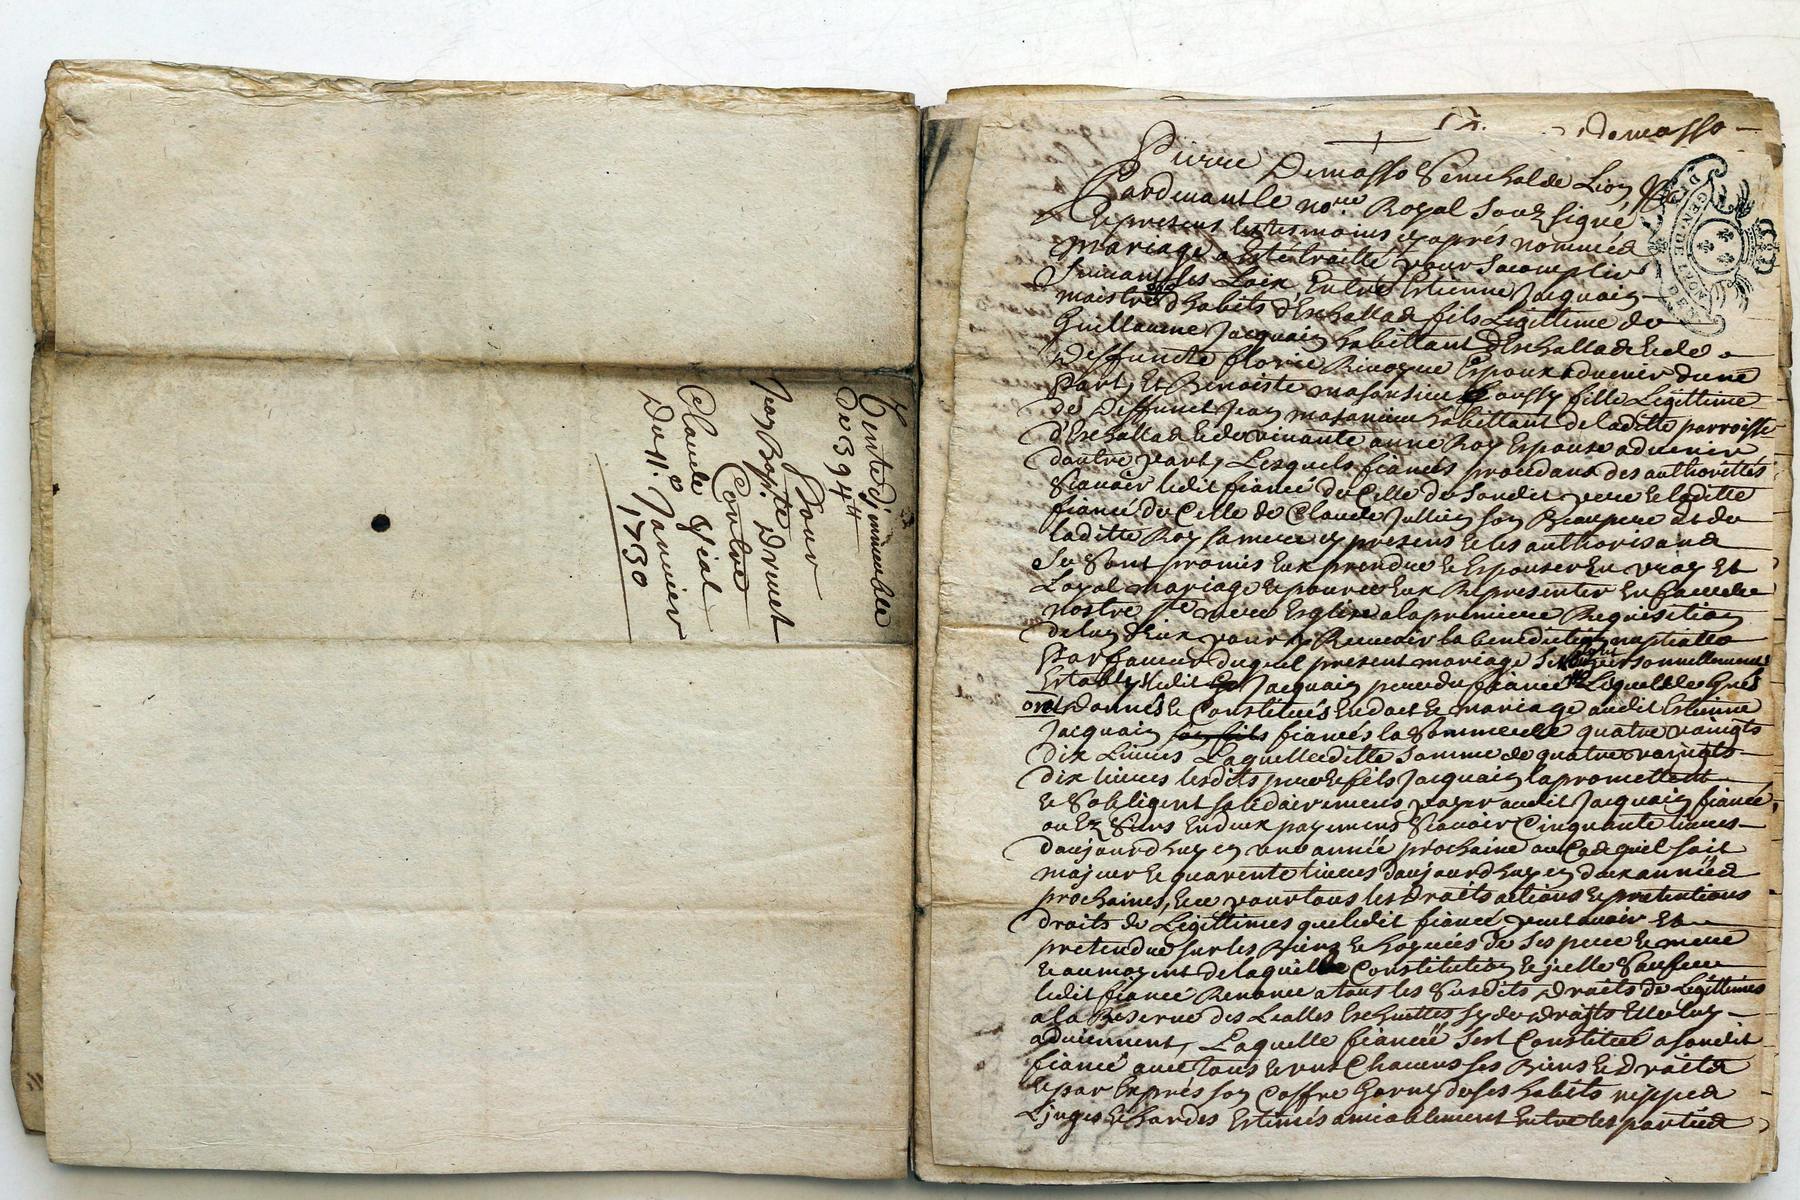 Vente d'immeuble
De 394 ₶
Pour
Jean Bapte. Druuet
Contre
Claude Vial
Du 11.e Janvier
1730
Demasso
Pierre Demasso Senechal de Lion
Pardevant le nore. Royal Souz signé
Et presens les tesmoins cy aprés nommés
mariage a esté traitté pour sacomplir
Suivant les Loix Entre Estienne Jacquain
maistre d'habits d'Eschallas fils Legittime de
Guillaume Jacquain habittant d'Eschallas Et de
deffuncte florie Espoux advenir dune
part, Et Benoiste aussy fille Legittime
de deffunct Jean habittant de laditte parroisse
d'Eschallas Et de vivante anne Roy Espouse advenir
dautre part, Lesquels fiancés procedans des authorités
Scavoir ledit fiancé de Celle de Sondit pere Et laditte
fiancée de Celle de Claude Jullien son Beaupere et de
laditte Roy sa mere cy presens Et les authorisans
Se Sont promis Eux prendre Et Espouser En vray Et
Loyal mariage Et pource Eux Representer En face de
nostre ste. mere Esglise a la premiere Requisition
de lun d'Eux pour y Recevoir la benediction nuptialle
Et a faveur duquel present mariage Sest personnellement
Estably ledit Jacquain pere du fiancé Lequel de Grés
ont donnés Et Constitués En dot Et mariage audit Estienne
Jacquain son fils fiancés la Somme de quatre vaingts
dix Livres Laquelle ditte Somme de quatre vaingts
dix livres lesdits pere Et fils Jacquain la promettent
Et Sobligent solidairement payer audit Jacquain fiancé,
ou Ez Siens En deux payemens Scavoir Cinquante livres
daujourdhuy en une année prochaine au Cas quil soit
majeur Et quarente livres daujourdhuy en deux années
prochaines, Et ce pour tous les droits actions Et pretentions
droits de Legittimes que ledit fiancé peut avoir Et
pretendre sur les Biens Et hoyries de Ses pere Et mere
Et au moyent de laquelle Constitution Et jcelle
ledit fiancé Renonce a tous les Susdits droits de Legittimes
a la Reserve des Lealles Escheuttes sy de droits Elle luy
adviennent, Laquelle fiancée Sest Constitué a sondit
fiancé avec tous Et uns Chacuns ses Biens Et droits
Et par Exprés son Coffre Garny de ses habits nippes
Linges Et hardes Estimés amiablement Entre les parties